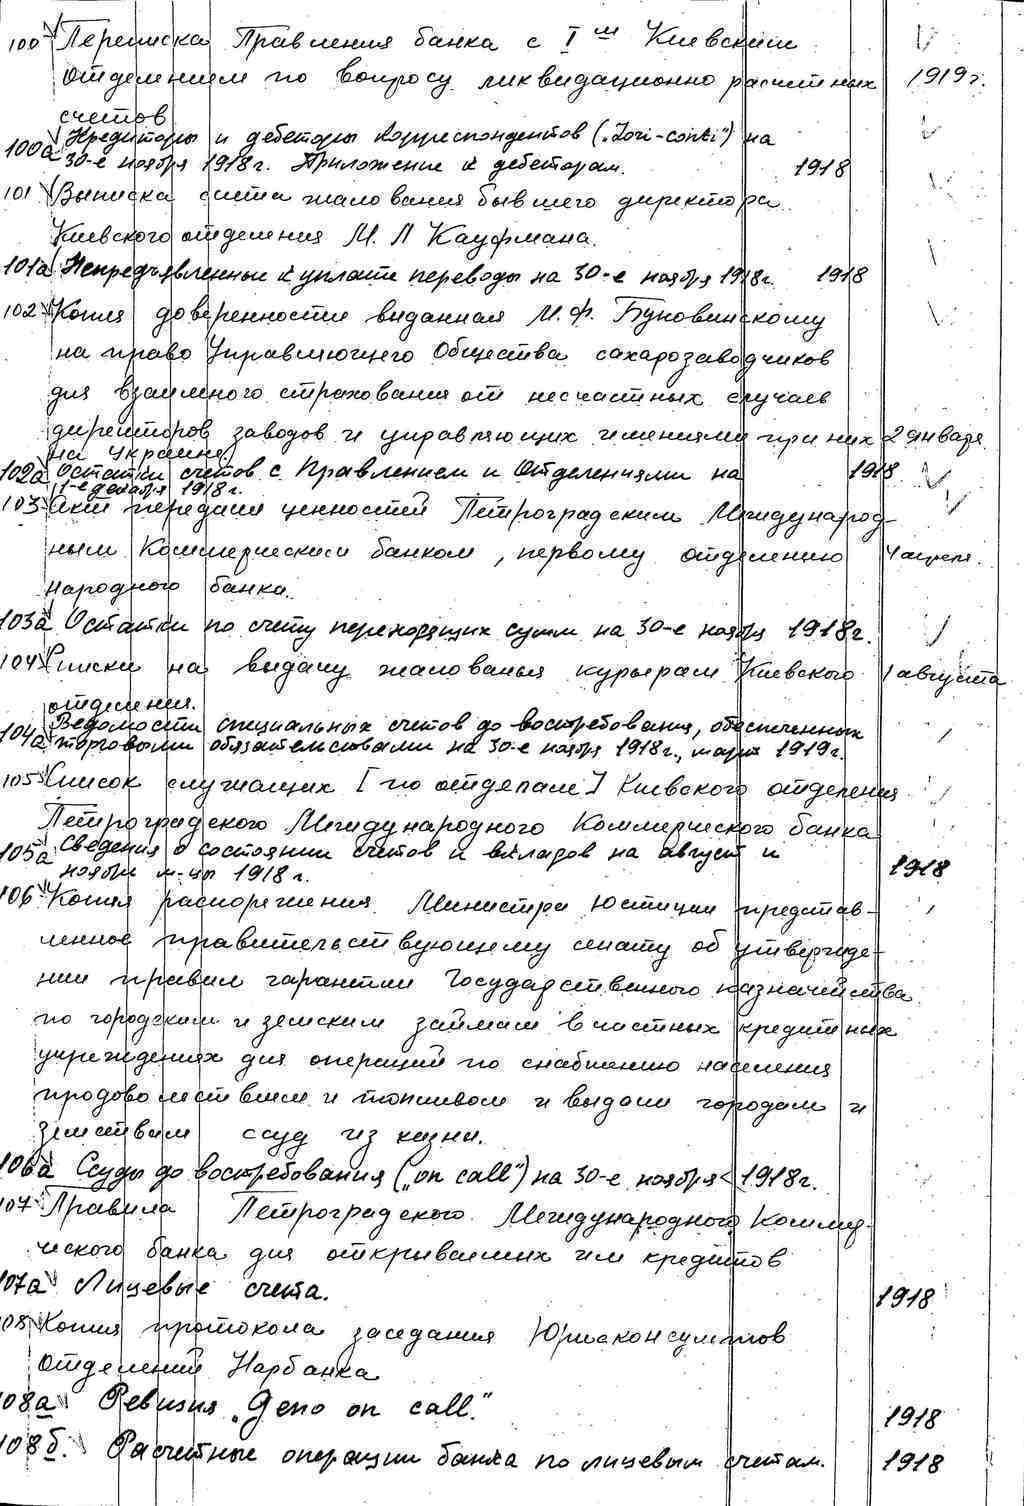 100 Переписка Правления банка с I-м Киевским
отделением по вопросу ликвидационно расчетных 1919г.
счетов
100а Кредиторы и дебеторы корреспондентов („Lori-conti") на
30-е ноября 1918г. Приложение к дебеторам. 1918
101 Выписка счета жалования бывшего директора
Киевского отделения М. Л Кауфмана.
101а Непредъявленные к уплате переводы на 30-е ноября 1918г. 1918
102 Копия доверенности выданная М.Ф. Буковинскому
на право Управляющего Общества сахарозаводчиков
для взаимного страхования от несчастных случаев
директоров заводов и управляющих имениями при них 2 января
на Украине.
102а Остатки счетов с Правлением и Отделениями на 1918
1-е декабря 1918г.
103 Акт передачи ценностей Петроградским Международ-
ным Коммерческим банком, первому отделению 4 апреля.
Народного банка.
103а Остатки по счету переходящих сумм на 30-е ноября 1918г.
104 Списки на выдачу жалованья курьерам Киевского 1 августа
отделения.
104а Ведомости специальных счетов до востребования, обеспеченных
торговыми обязательствами на 30-е ноября 1918г., март 1919г.
105 Список служащих [по отделам] Киевского отделения
Петроградского Международного Коммерческого банка
105а Сведения о состоянии счетов и вкладов на август и 1918
ноябрь м-цы 1918г.
106 Копия распоряжения Министра Юстиции представ-
ленное правительствующему сенату об утвержде-
нии правил гарантии Государственного казначейства
по городским и земским займам в частных кредитных
учреждениях для операций по снабжению населения
продовольствием и топливом и выдачи городам и
земствам ссуд из казны.
106а Ссуды до востребования („on call") на 30-е ноября 1918г.
107 Правила Петроградского Международного Коммер-
ческого банка для открываемых им кредитов
107а Лицевые счета. 1918
108 Копия протокола заседания Юрисконсультов
отделений Нарбанка
108а Ревизия „Депо on call." 1918
108б. Расчетные операции банка по лицевым счетам. 1918